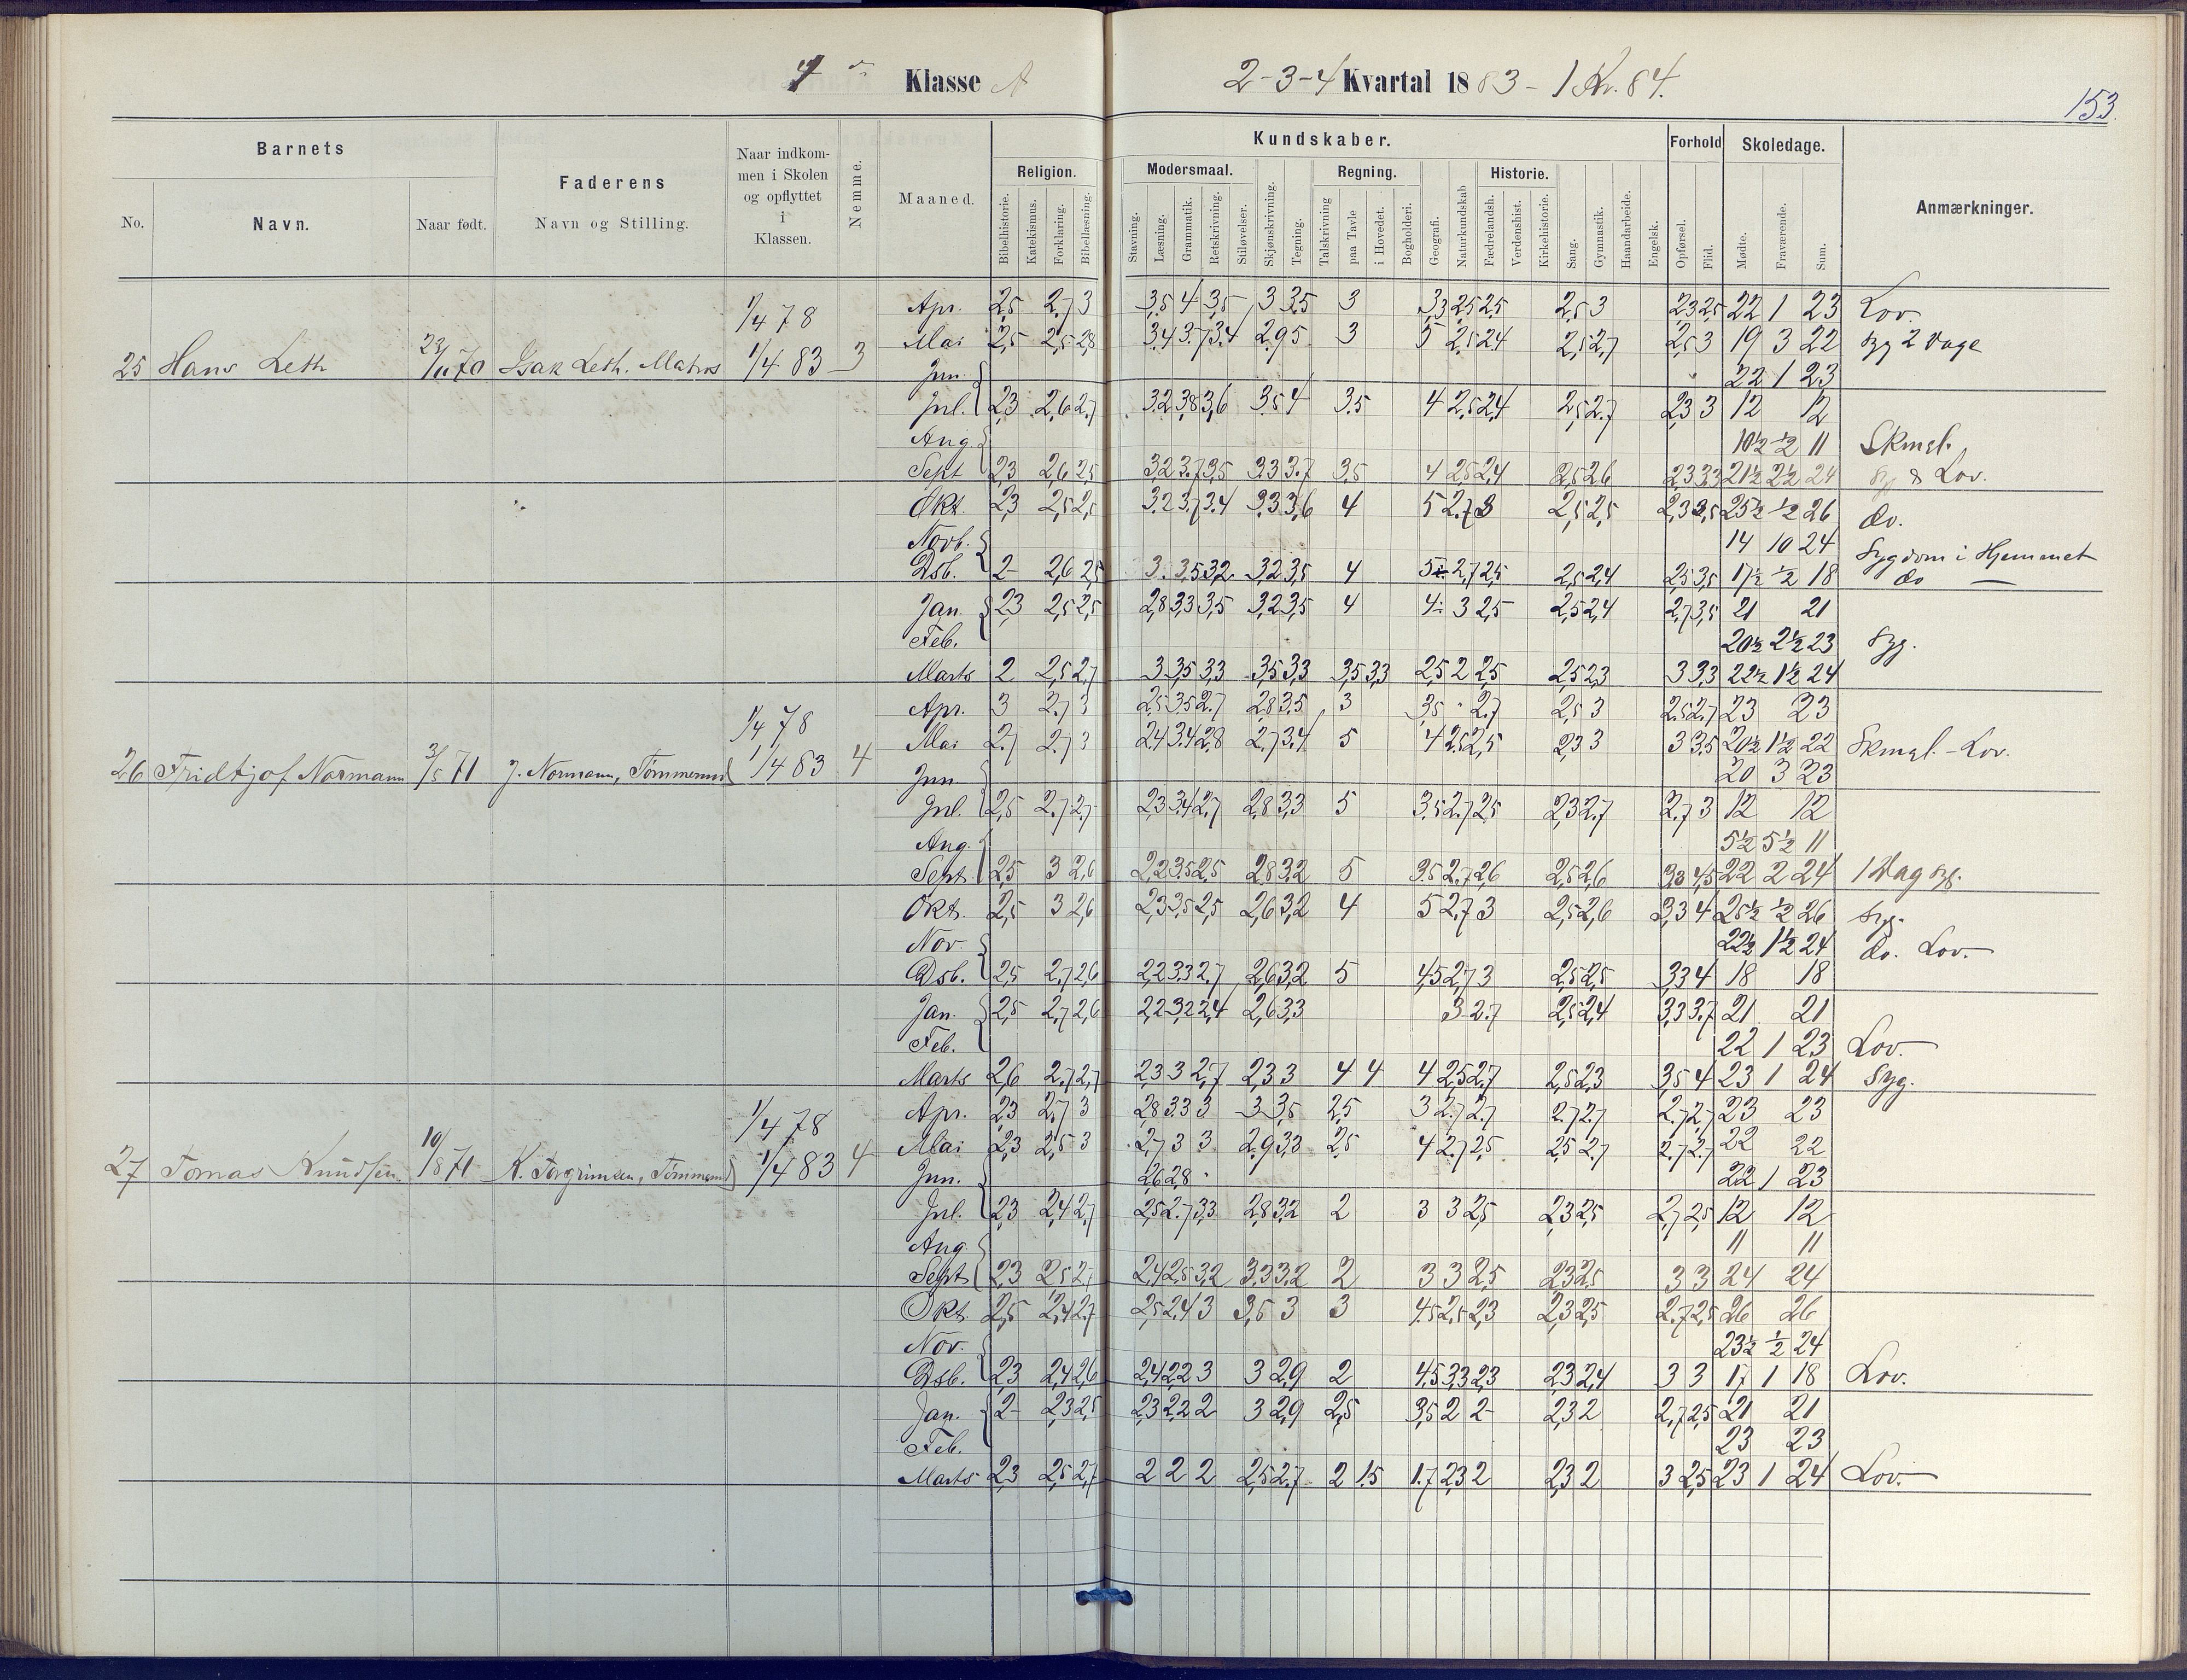 4de Klasse A
2-3-4 Kvartal 1883 - 1 Kv. 84.
153.
Barnets
Faderens
Naar indkommen i Skolen og opflyttet i Klassen.
Nemme.
Maaned.
Kundskaber.
Forhold
Skoledage.
Anmærkninger.
No.
Navn.
Naar født.
Navn og Stilling.
Religion.
Modersmaal.
Regning.
Historie.
Bibelhistorie. Katekismus. Forklaring. Bibellæsning. Stavning. Læsning. Grammatik. Retskrivning. Stiløvelser. Skjønskrivning. Tegning. Talskrivning paa Tavle i Hovedet. Bogholderi. Geografi. Naturkundskab Fædrelandsh. Verdenshist. Kirkehistorie. Sang. Gymnastik. Haandarbeide. Engelsk. Opførsel. Flid. Mødte. Fraværende. Sum.
25 Hans Leth 23/11 70 Isak Leth. Matros 1/4 78 1/4 83 3
Apr. 2,5 2,7 3 3,5 4 3,5 3 3,5 3 3,3 2,5 2,5 2,5 3 2,3 2,5 22 1 23 Lov.
Mai 2,5 2,5 2,8 3,4 3,7 3,4 2,9 5 3 5 2,5 2,4 2,5 2,7 2,5 3 19 3 22 Syg 2 Dage
Jun. 22 1 23
Jul. 2,3 2,6 2,7 3,2 3,8 3,6 3,5 4 3,5 4 2,5 2,4 2,5 2,7 2,3 3 12 12
Aug. 10½ ½ 11 Skmsl.
Sept 2,3 2,6 2,5 3,2 3,7 3,5 3,3 3,7 3,5 4 2,5 2,4 2,5 2,6 2,3 3,3 21½ 2½ 24 Syg & Lov.
Okt. 2,3 2,5 2,5 3,2 3,7 3,4 3,3 3,6 4 5 2,7 3 2,5 2,5 2,3 3,5 25½ ½ 26 do.
Novb. 14 10 24 Sygdom i Hjemmet
Dsb. 2- 2,6 2,5 3 3,5 3,2 3,2 3,5 4 5 2,7 2,5 2,5 2,4 2,5 3,5 17½ ½ 18 do —
Jan. 2,3 2,5 2,5 2,8 3,3 3,5 3,2 3,5 4 4÷ 3 2,5 2,5 2,4 2,7 3,5 21 21
Feb. 20½ 2½ 23 Syg.
Marts 2 2,5 2,7 3 3,5 3,3 3,5 3,3 3,5 3,3 2,5 2 2,5 2,5 2,3 3 3,3 22½ 1½ 24
26 Fridtjof Normann 3/5 71 J. Normann, Tømmermd 1/4 78 1/4 83 4
Apr. 3 2,7 3 2,5 3,5 2,7 2,8 3,5 3 3,5 " 2,7 2,5 3 2,5 2,7 23 23
Mai 2,7 2,7 3 2,4 3,4 2,8 2,7 3,4 5 4 2,5 2,5 2,3 3 3 3,5 20½ 1½ 22 Skmsl. - Lov.
Jun 20 3 23
Jul. 2,5 2,7 2,7 2,3 3,4 2,7 2,8 3,3 5 3,5 2,7 2,5 2,3 2,7 2,7 3 12 12
Aug. 5½ 5½ 11
Sept. 2,5 3 2,6 2,2 3,5 2,5 2,8 3,2 5 3,5 2,7 2,6 2,5 2,6 3,3 4,5 22 2 24 1 Dag syg.
Okt. 2,5 3 2,6 2,3 3,5 2,5 2,6 3,2 4 5 2,7 3 2,5 2,6 3,3 4 25½ ½ 26 Syg.
Nov. 22½ 1½ 24 do. Lov.
Dsb. 2,5 2,7 2,6 2,2 3,3 2,7 2,6 3,2 5 4,5 2,7 3 2,5 2,5 3,3 4 18 18
Jan. 2,5 2,7 2,6 2,2 3,2 2,4 2,6 3,3 3 2,7 2,5 2,4 3,3 3,7 21 21
Feb. 22 1 23 Lov.
Marts 2,6 2,7 2,7 2,3 3 2,7 2,3 3 4 4 4 2,5 2,7 2,5 2,3 3,5 4 23 1 24 Syg.
27 Tomas Knudsen 10/8 71 K. Torgrimsen, Tømmermd 1/4 78 1/4 83 4
Apr. 2,3 2,7 3 2,8 3,3 3 3 3,5 2,5 3 2,7 2,7 2,7 2,7 2,7 2,7 23 23
Mai 2,3 2,5 3 2,7 3 3 2,9 3,3 2,5 4 2,7 2,5 2,5 2,7 2,7 2,7 22 22
Jun. 2,6 2,8 " 22 1 23
Jul. 2,3 2,4 2,7 2,5 2,7 3,3 2,8 3,2 2 3 3 2,5 2,3 2,5 2,7 2,5 12 12
Aug. 11 11
Sept 2,3 2,5 2,7 2,4 2,8 3,2 3,3 3,2 2 3 3 2,5 2,3 2,5 3 3 24 24
Okt. 2,5 2,4 2,7 2,5 2,4 3 3,5 3 3 4,5 2,5 2,3 2,3 2,5 2,7 2,5 26 26
Nov. 23½ ½ 24
Dsb. 2,3 2,4 2,6 2,4 2,2 3 3 2,9 2 4,5 3,3 2,3 2,3 2,4 3 3 17 1 18 Lov.
Jan. 2- 2,3 2,5 2,3 2,2 2 3 2,9 2,5 3,5 2 2- 2,3 2 2,7 2,5 21 21
Feb. 23 23
Marts 2,3 2,5 2,7 2 2 2 2,5 2,7 2 1,5 1,7 2,3 2 2,3 2 3 2,5 23 1 24 Lov.